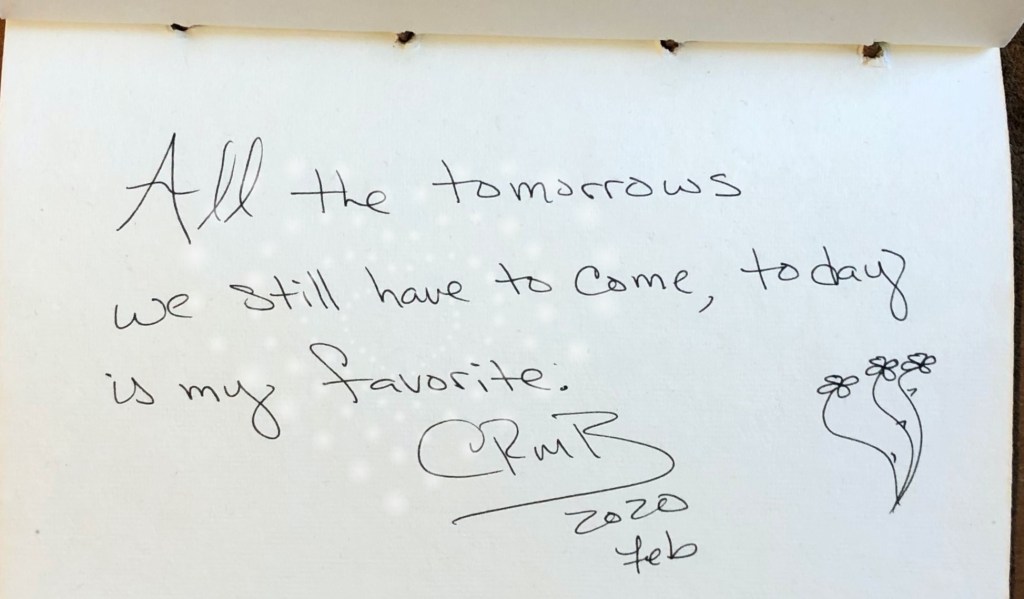 All the tomorrows
we still have to come, today
is my favorite.
CRMB
2020
feb